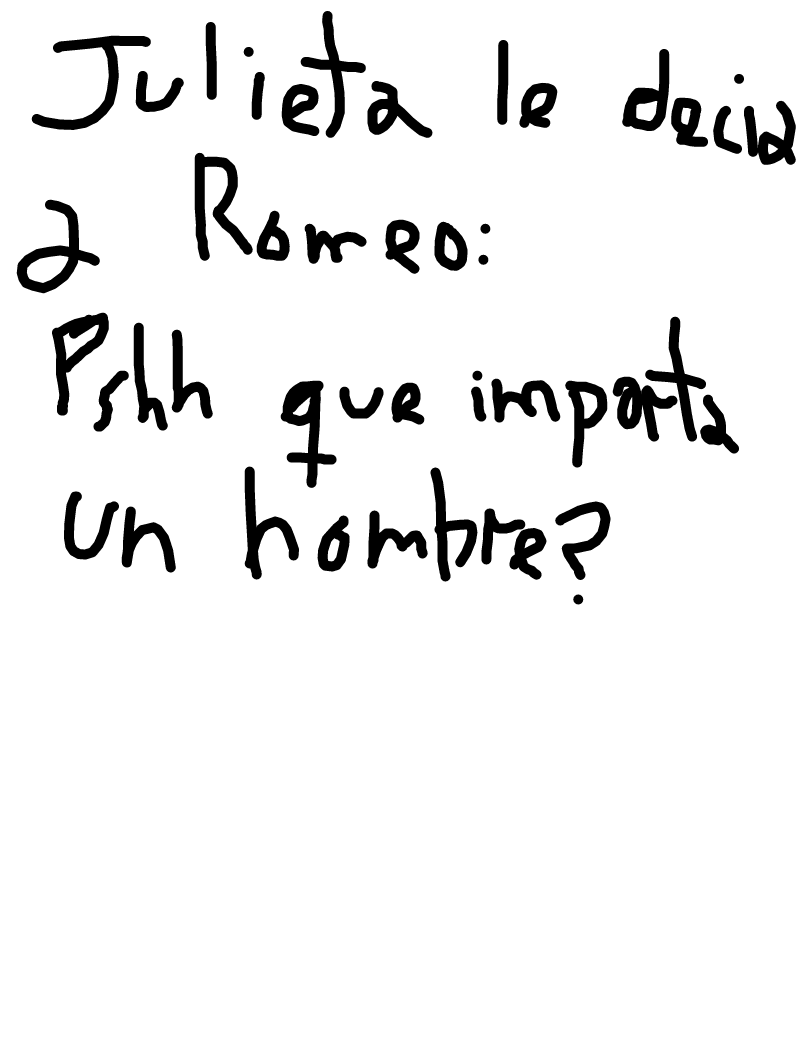 Julieta le decia
a Romeo:
Pshh que importa
un hombre?